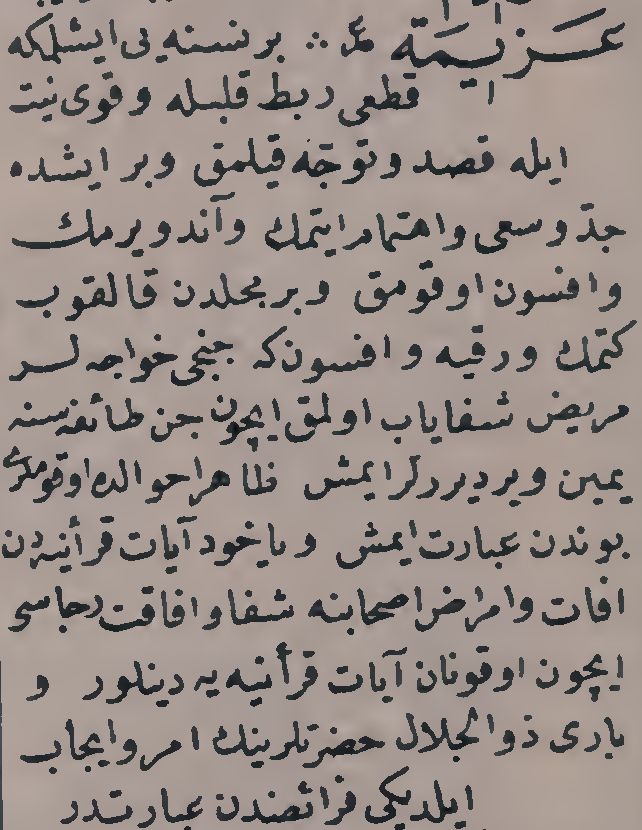 عزيمة ع ∴ بر نسنه يى ايشلمكه
قطعى ربط قلبله و قوى نيت
ايله قصد و توجّه قيلمق و بر ايشده
جدّ و سعى و اهتمام ايتمك و آند ويرمك
و افسون اوقومق و بر محلدن قالقوب
كتمك و رقيه و افسون كه جنجى خواجه لر
مريض شفاياب اولمق ايچون جن طائفه سنه
يمين ويرديررلر ايمش ظاهرا حوالده اوقومه لرى
بوندن عبارت ايمش و ياخود آيات قرأنيه دن
افات و امراض اصحابنه شفا و افاقت رجاسى
ايچون اوقونان آيات قرأنيه يه دينلور و
بارى ذو الجلال حضرتلرينك امر و ايجاب
ايلديكى فرائضندن عبارتدر